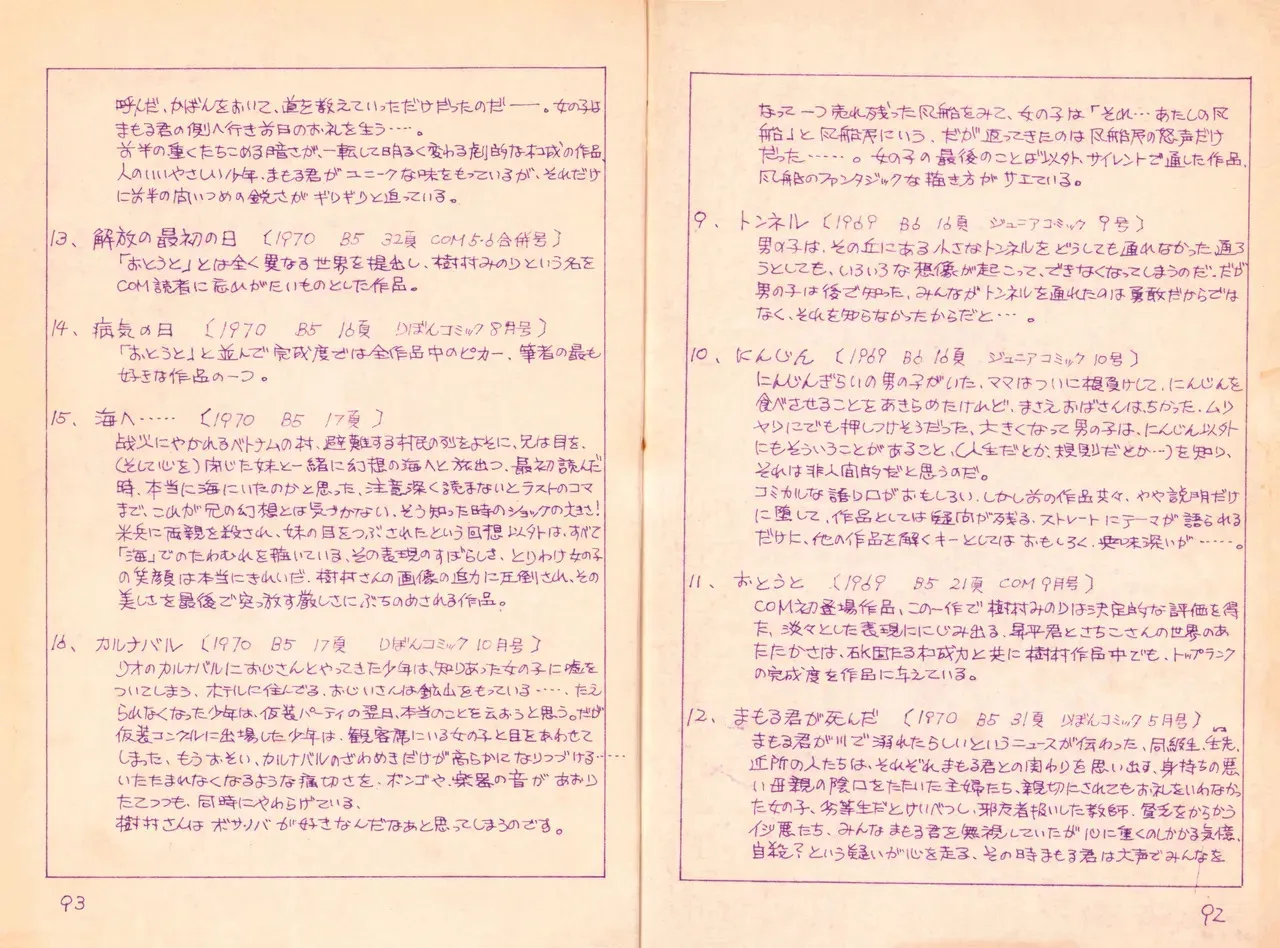 なって一つ売れ残った風船をみて、女の子は「それ…あたしの風
船」と風船屋にいう、だが返ってきたのは風船屋の怒声だけ
だった……。女の子の最後のことば以外、サイレントで通した作品、
風船のファンタジックな描き方がサエている。
9、トンネル (1969 B6 16頁 ジュニアコミック 9号)
男の子は、その丘にある小さなトンネルをどうしても通れなかった、通ろ
うとしても、いろいろな想像が起こって、できなくなってしまうのだ、だが
男の子は後で知った、みんながトンネルを通れたのは勇敢だからでは
なく、それを知らなかったからだと…。
10、にんじん (1969 B6 16頁 ジュニアコミック 10号)
にんじんぎらいの男の子がいた、ママはついに根負けして、にんじんを
食べさせることをあきらめたけれど、まさえおばさんはちがった、ムリ
ヤリにでも押しつけそうだった、大きくなって男の子は、にんじん以外
にもそういうことがあること、(人生だとか、規則だとか…)を知り、
それは非人間的だと思うのだ。
コミカルな語り口がおもしろい、しかし前の作品共々、やや説明だけ
に堕して、作品としては疑問が残る、ストレートにテーマが語られる
だけに、他の作品を解くキーとしてはおもしろく、興味深いが……。
11、おとうと (1969 B5 21頁 COM 9月号)
COM初登場作品、この一作で樹村みのりは決定的な評価を得
た、淡々とした表現ににじみ出る、昇平君とさちこさんの世界のあ
たたかさは、確固たる構成力と共に樹村作品中でも、トップランク
の完成度を作品に与えている。
12、まもる君が死んだ (1970 B5 31頁 りぼんコミック 5月号)
まもる君が川で溺れたらしいというニュースが伝わった、同級生、先生、
近所の人たちは、それぞれまもる君との関わりを思い出す、身持ちの悪
い母親の陰口をたたいた主婦たち、親切にされてもお礼をいわなかっ
た女の子、劣等生だとけいべつし、邪魔者扱いした教師、貧乏をからかう
イジ悪たち、みんなまもる君を無視していたが心に重くのしかかる気憶、
自殺?という疑いが心を走る、その時まもる君は大声でみんなを
92
呼んだ、かばんをおいて、道を教えていっただけだったのだ――。女の子は
まもる君の側へ行き前日のお礼を生う…。
前半の重くたちこめる暗さが、一転して明るく変わる劇的な構成の作品、
人のいいやさしい少年、まもる君がユニークな味をもっているが、それだけ
に前半の問いつめの鋭さがギリギリと迫っている。
13、解放の最初の日 (1970 B5 32頁 COM 5・6合併号)
「おとうと」とは全く異なる世界を提出し、樹村みのりという名を
COM読者に忘れがたいものとした作品。
14、病気の日 (1970 B5 16頁 りぼんコミック 8月号)
「おとうと」と並んで完成度では全作品中のピカ一、筆者の最も
好きな作品の一つ。
15、海へ…… (1970 B5 17頁)
戦火にやかれるベトナムの村、避難する村民の列をよそに、兄は目を、
(そして心を)閉じた妹と一緒に幻想の海へと旅出つ、最初読んだ
時、本当に海にいたのかと思った、注意深く読まないとラストのコマ
まで、これが兄の幻想とは気づかない、そう知った時のショックの大きさ!
米兵に両親を殺され、妹の目をつぶされたという回想以外は、すべて
「海」でのたわむれを描いている、その表現のすばらしさ、とりわけ女の子
の笑顔は本当にきれいだ、樹村さんの画像の迫力に圧倒され、その
美しさを最後で突っ放す厳しさにぶちのめされる作品。
16、カルナバル (1970 B5 17頁 りぼんコミック 10月号)
リオのカルナバルにおじさんとやってきた少年は、知りあった女の子に嘘を
ついてしまう、ホテルに住んでる、おじいさんは鉱山をもっている……、たえ
られなくなった少年は、仮装パーティの翌日、本当のことを云おうと思う。だが
仮装コンクルに出場した少年は、観客席にいる女の子と目をあわせて
しまった、もうおそい、カルナバルのざわめきだけが高らかになりつづける……
いたたまれなくなるような痛切さを、ボンゴや、楽器の音があおり
たてつつも、同時にやわらげている、
樹村さんはボサノバが好きなんだなあと思ってしまうのです。
93